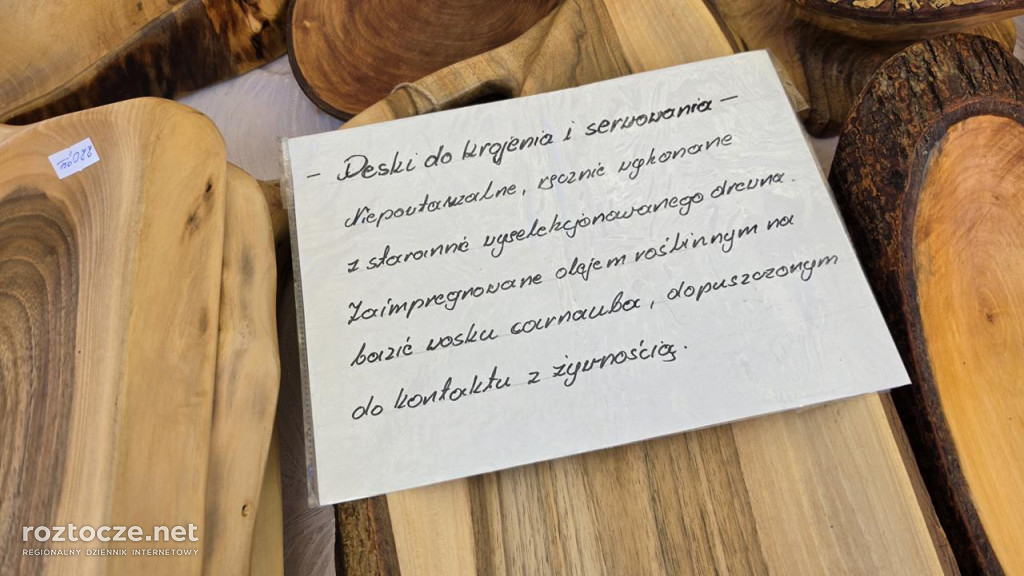 220,-
- Deski do krojenia i serwowania -
Niepowtarzalne, ręcznie wykonane
z starannie wyselekcjonowanego drewna.
Zaimpregnowane olejem roślinnym na
bazie wosku carnauba, dopuszczonym
do kontaktu z żywnością.
roztocze.net
REGIONALNY DZIENNIK INTERNETOWY